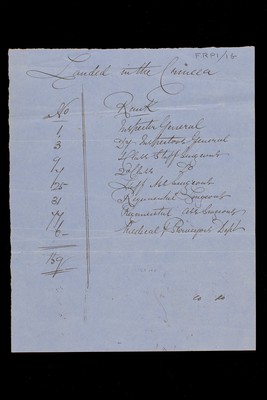 Landed in the Crimea
No Rank
1 Inspector General
3 Dy Inspectors General
9 1st Class Staff Surgeons
7 2d Class Do
25 Staff Asst Surgeons
31 Regimental Surgeons
77 Regimental Asst Surgeons
6 Medical & Purveyors Dept
159